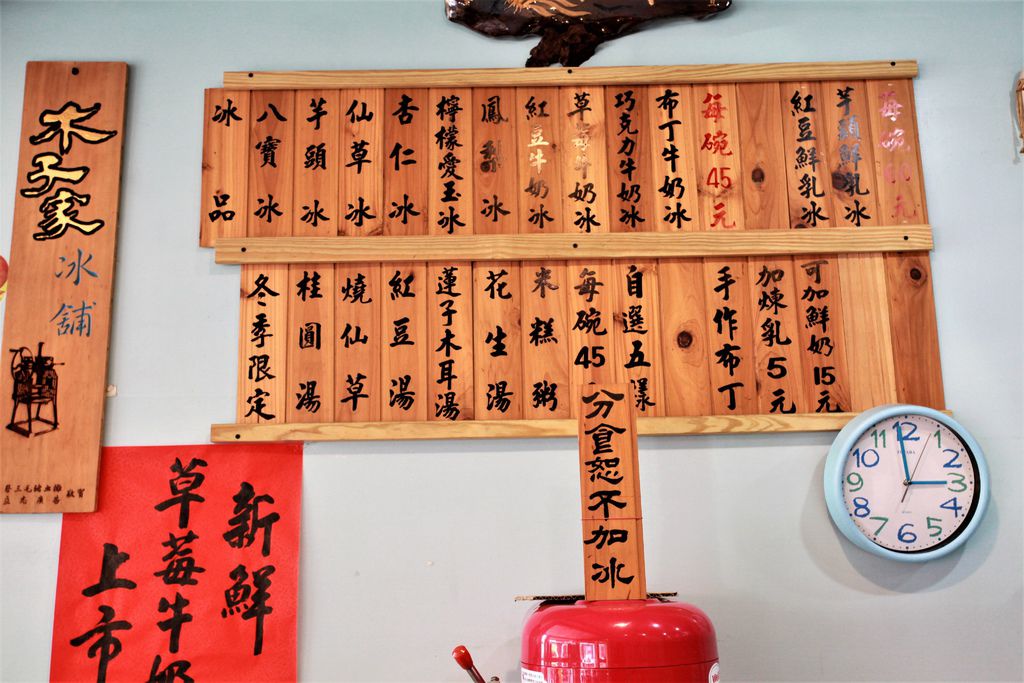 木子家
冰舖
冰品
八寶冰
芋頭冰
仙草冰
杏仁冰
檸檬愛玉冰
鳳梨冰
紅豆牛奶冰
草莓牛奶冰
巧克力牛奶冰
布丁牛奶冰
每碗45元
紅豆鮮乳冰
芋頭鮮乳冰
每碗60元
冬季限定
桂圓湯
燒仙草
紅豆湯
蓮子木耳湯
花生湯
米糕粥
每碗45
自選五漾
手作布丁
加煉乳5元
可加鮮奶15元
分食恕不加冰
新鮮
草莓牛奶
上市
12
1
2
3
4
5
6
7
8
9
10
11